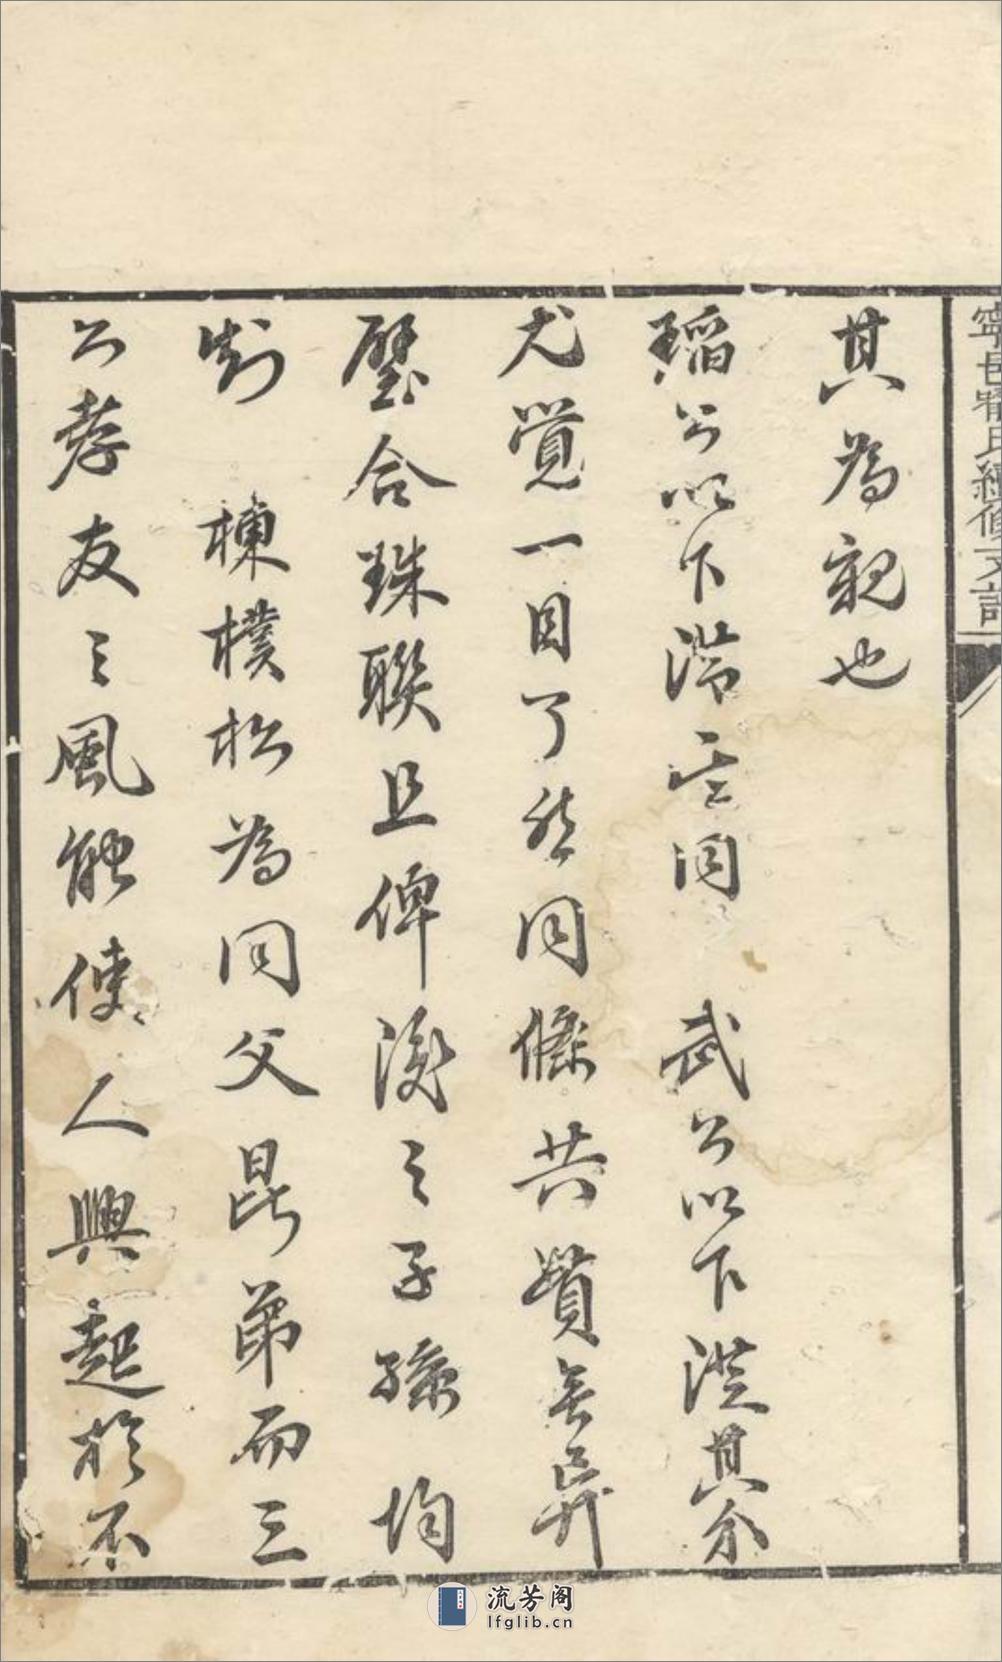 寧邑 氏續修支譜
其為親也
稻公以下 同 武公以下 其分
尤覺一目了然同條共貫無異
璧合珠聯且俾後之子孫均
劃 棟樸松為同父昆弟而三
公孝友之風能使人興起於不
流芳阁
lfglib.cn